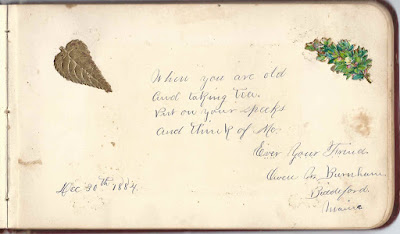 When you are old
and taking tea.
Put on your specks
And think of Me.
Ever Your Friend.
Burnham.
Biddeford.
Maine
Dec 20th 1884.